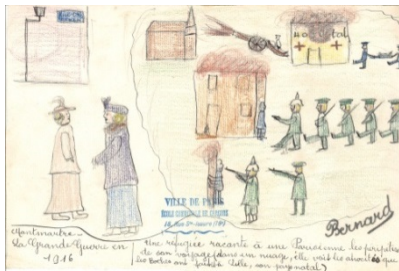 Hôpital
VILLE DE PARIS
Bernard
Montmartre
La Grande Guerre en
1916
Une réfugiée raconte à une Parisienne les péripéties
de son voyage, dans un nuage, elle voit les atrocités que
les Boches ont à Lille, son pays natal